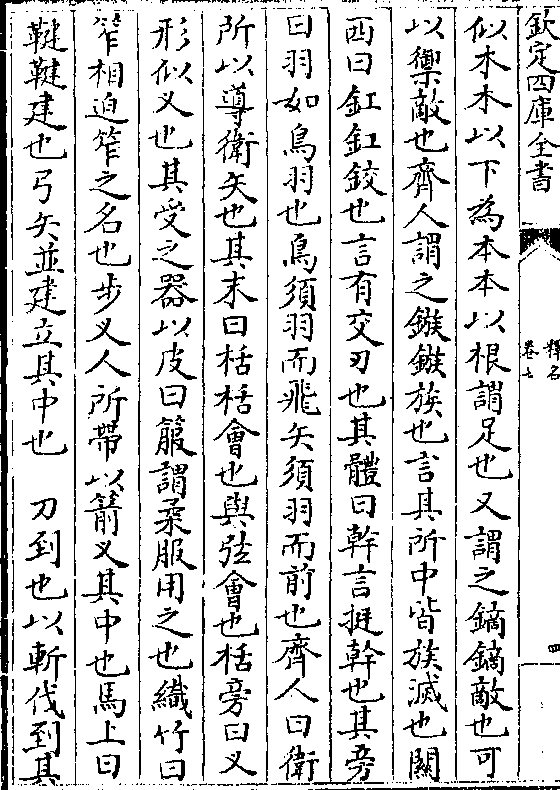 欽定四庫全書
釋名
卷七
四
似木木以下為本本以根謂足也又謂之鏑鏑敵也可
以禦敵也齊人謂之鏃鏃族也言其所中皆族滅也關
西曰釭釭鉸也言有交刃也其體曰幹言挺幹也其旁
曰羽如鳥羽也鳥須羽而飛矢須羽而前也齊人曰衛
所以導衛矢也其末曰栝栝會也與弦會也栝旁曰叉
形似叉也其受之器以皮曰箙謂柔服用之也織竹曰
笮相迫笮之名也步叉人所帶以箭叉其中也馬上曰
鞬鞬建也弓矢並建立其中也　刀到也以斬伐到其